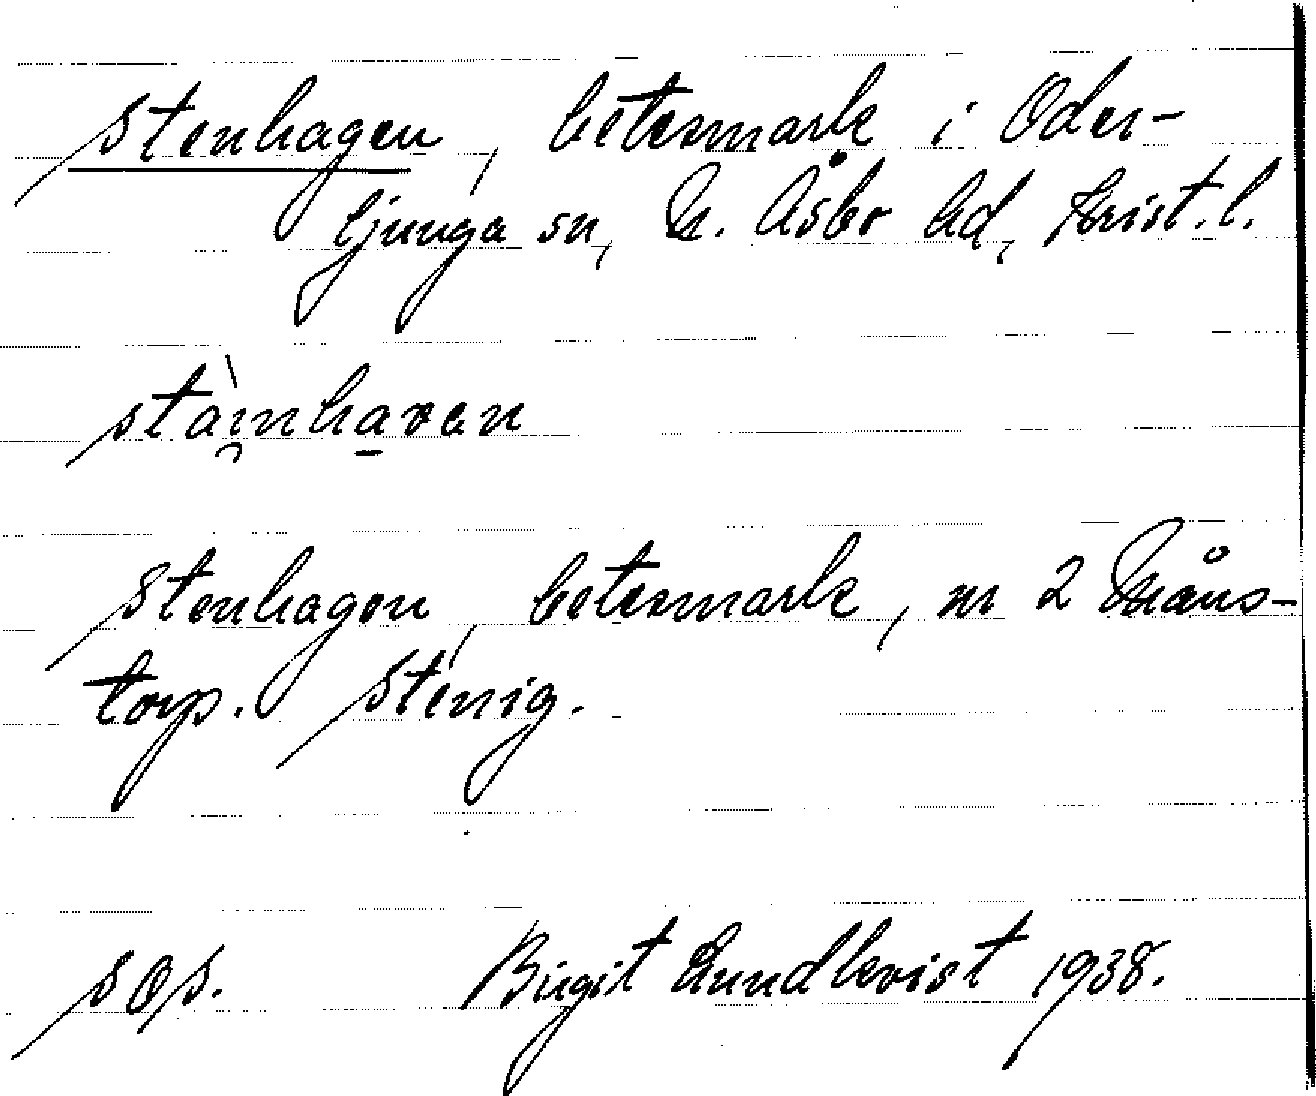 Stenhagen, betesmark i Oder-
ljunga sn, N. Åsbo hd, Krist. l.
stài̯nha̠ven
Stenhagen, betesmark, nr 2 Måns-
torp. Stenig.
SOS. Birgit Lundkvist 1938.